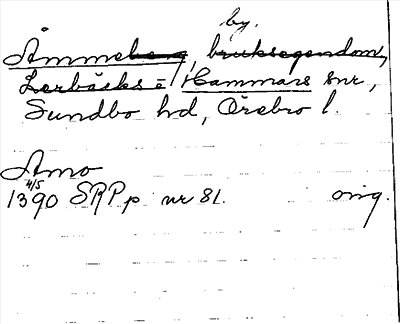 by.
Åmmeberg, bruksegendom,
Lerbäcks o Hammars snr,
Sundbo hd, Örebro l.
Amo
4/5
1390 SRPp nr 81. orig.